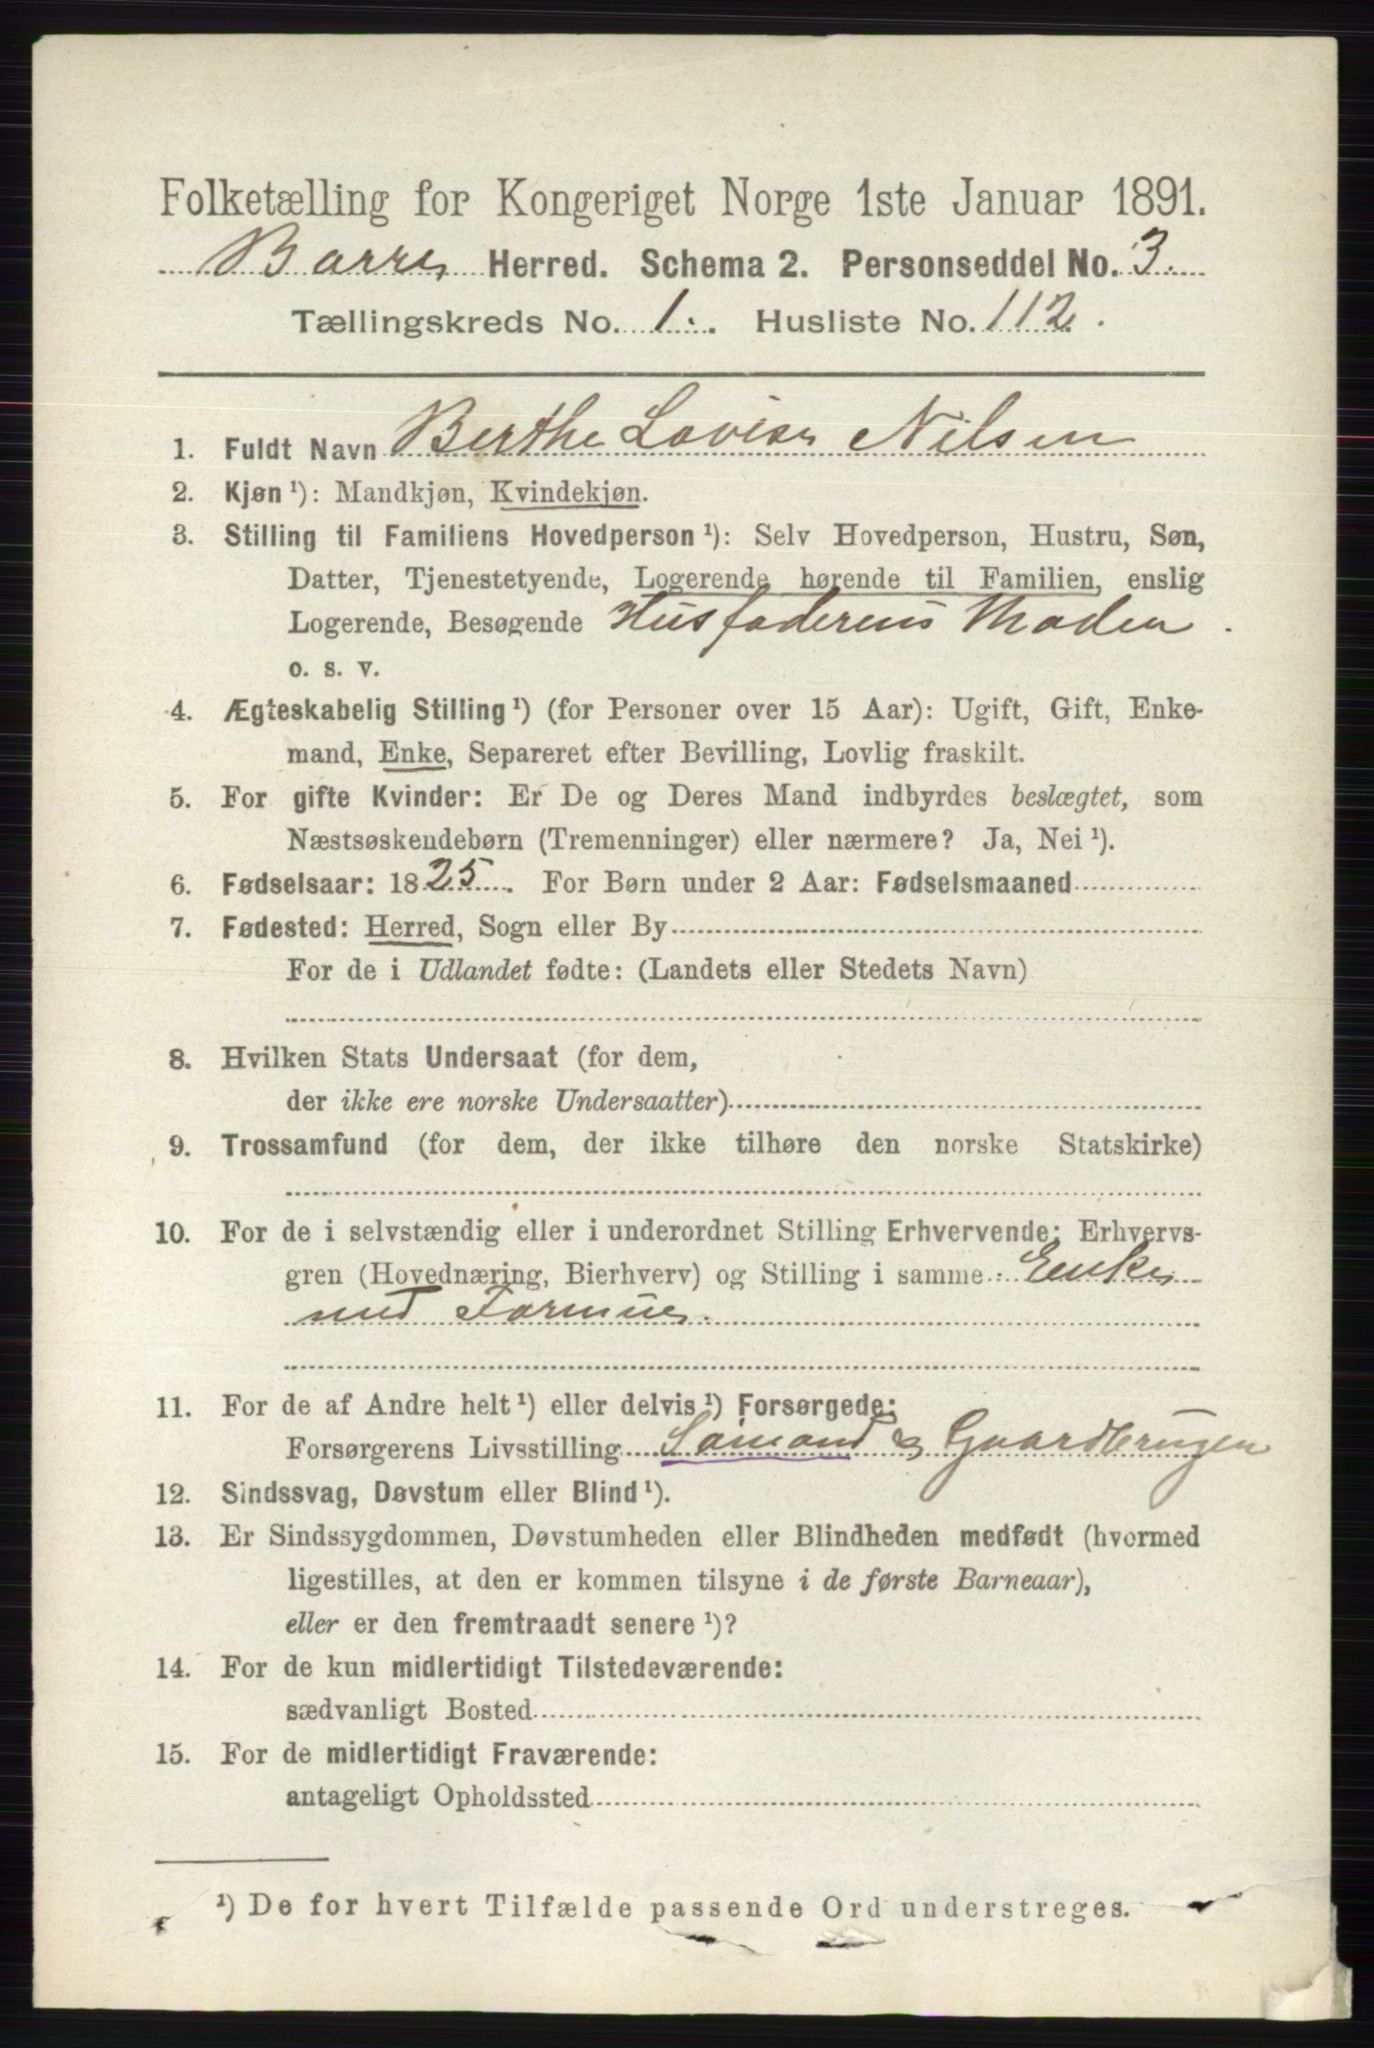 Folketælling for Kongeriget Norge 1ste Januar 1891.
Borre Herred. Schema 2. Personseddel No. 3.
Tællingskreds No. 1. Husliste No. 112.
1. Fuldt Navn Berthe Lovise Nilsen
2. Kjøn¹): Mandkjøn, Kvindekjøn.
3. Stilling til Familiens Hovedperson¹): Selv Hovedperson, Hustru, Søn,
Datter, Tjenestetyende, Logerende hørende til Familien, enslig
Logerende, Besøgende Husfaderens Moder.
o. s. v.
4. Ægteskabelig Stilling¹) (for Personer over 15 Aar): Ugift, Gift, Enke-
mand, Enke, Separeret efter Bevilling, Lovlig fraskilt.
5. For gifte Kvinder: Er De og Deres Mand indbyrdes beslægtet, som
Næstsøskendebørn (Tremenninger) eller nærmere? Ja, Nei¹).
6. Fødselsaar: 1825. For Børn under 2 Aar: Fødselsmaaned
7. Fødested: Herred, Sogn eller By
For de i Udlandet fødte: (Landets eller Stedets Navn)
8. Hvilken Stats Undersaat (for dem,
der ikke ere norske Undersaatter)
9. Trossamfund (for dem, der ikke tilhøre den norske Statskirke)
10. For de i selvstændig eller i underordnet Stilling Erhvervende: Erhvervs-
gren (Hovednæring, Bierhverv) og Stilling i samme Enke
med Formue.
11. For de af Andre helt¹) eller delvis¹) Forsørgede:
Forsørgerens Livsstilling Sømand & Gaardbruger
12. Sindssvag, Døvstum eller Blind¹).
13. Er Sindssygdommen, Døvstumheden eller Blindheden medfødt (hvormed
ligestilles, at den er kommen tilsyne i de første Barneaar),
eller er den fremtraadt senere¹)?
14. For de kun midlertidigt Tilstedeværende:
sædvanligt Bosted
15. For de midlertidigt Fraværende:
antageligt Opholdssted
¹) De for hvert Tilfælde passende Ord understreges.